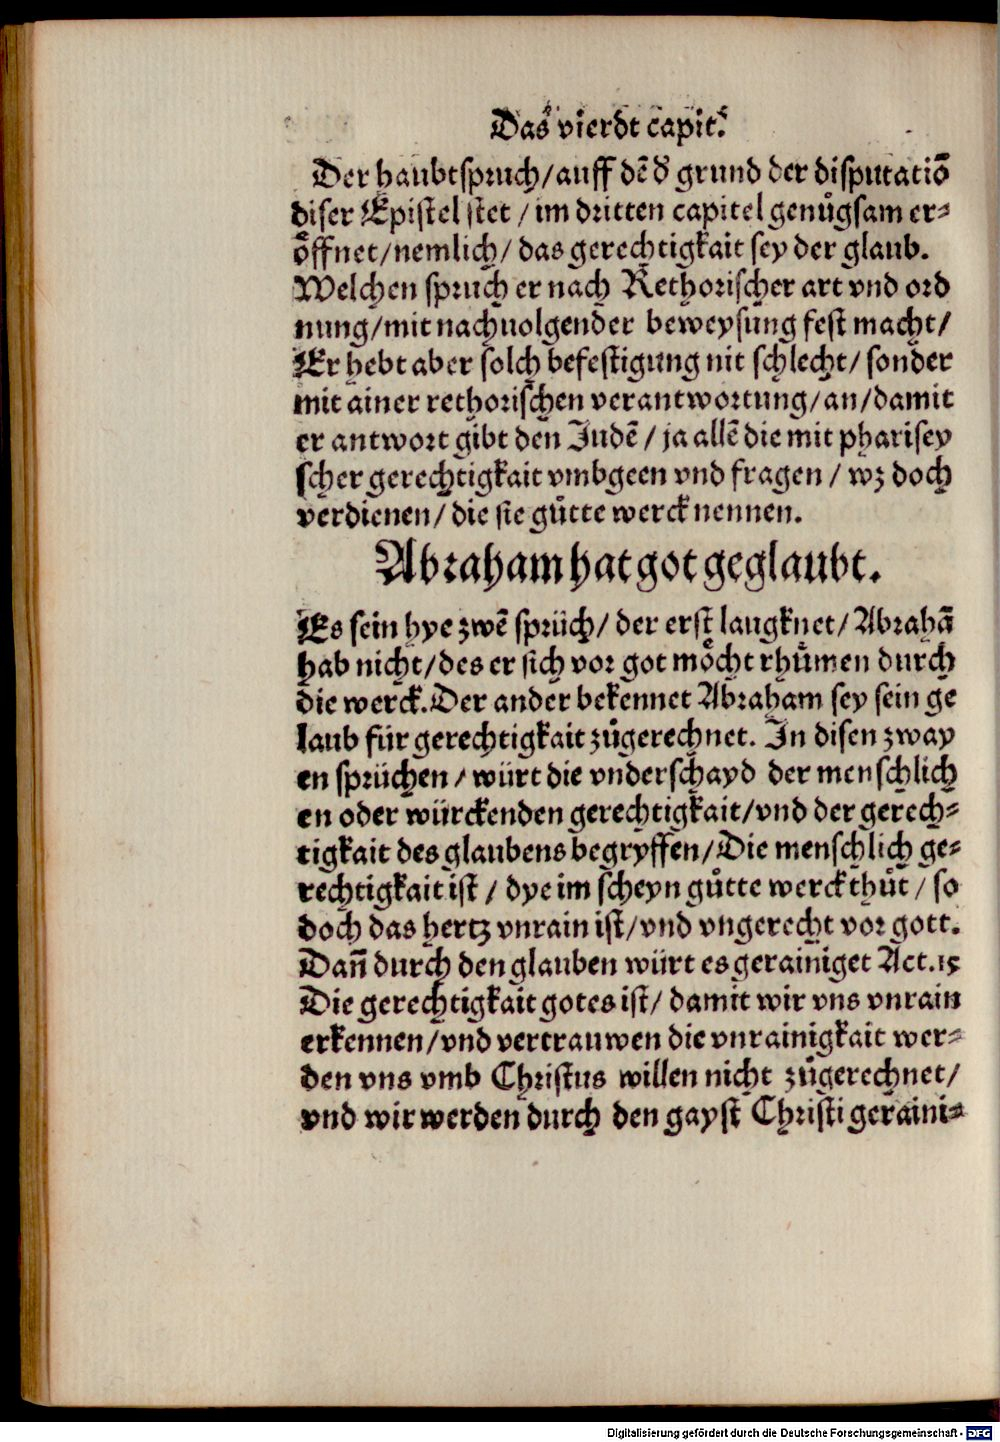 Das vierdt capit.
Der haubtspruch/auff dē d̕ grund der disputatiō
diser Epistel stet / im dritten capitel genůgsam er⸗
oͤffnet/nemlich/ das gerechtigkait sey der glaub.
Welchen spruch er nach Rethorischer art vnd ord
nung/mit nachuolgender beweysung fest macht/
Er hebt aber solch befestigung nit schlecht/ sonder
mit ainer rethorischen verantwortung/an/damit
er antwort gibt den Judē / ja allē die mit pharisey
scher gerechtigkait vmbgeen vnd fragen / wz doch
verdienen/ die sie gůtte werck nennen.
Abraham hat got geglaubt.
Es sein hye zwē sprüch/ der erst laugknet/ Abrahā
hab nicht/ des er sich vor got moͤcht rhuͤmen durch
die werck. Der ander bekennet Abraham sey sein ge
laub für gerechtigkait zůgerechnet. In disen zway
en sprüchen / würt die vnderschayd der menschlich
en oder würckenden gerechtigkait/vnd der gerech⸗
tigkait des glaubens begryffen/Die menschlich ge⸗
rechtigkait ist / dye im scheyn gůtte werck thůt / so
doch das hertz vnrain ist/vnd vngerecht vor gott.
Dañ durch den glauben würt es gerainiget Act.15
Die gerechtigkait gotes ist/ damit wir vns vnrain
erkennen/vnd vertrauwen die vnrainigkait wer⸗
den vns vmb Christus willen nicht zůgerechnet/
vnd wir werden durch den gayst Christi geraini⸗
Digitalisierung gefördert durch die Deutsche Forschungsgemeinschaft - DFG